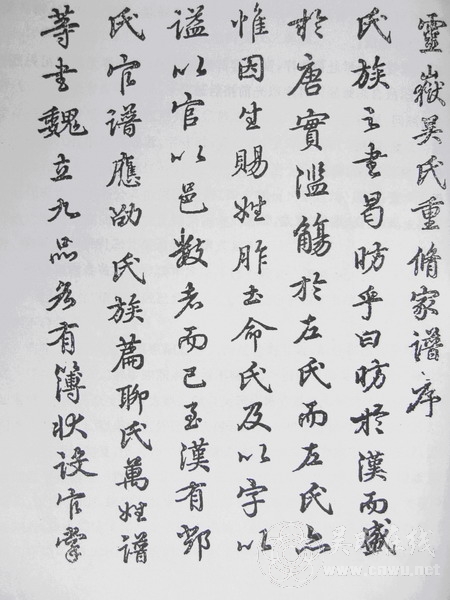 靈嶽吴氏重脩家譜序
氏族之書曷昉乎曰昉於漢而盛
於唐實濫觴於左氏而左氏亦
惟因生賜姓胙土命氏及以字以
謚以官以邑數者而已至漢有鄧
氏官譜應劭氏族篇聊氏萬姓譜
等書魏立九品各有簿狀設官掌
www.cawu.net